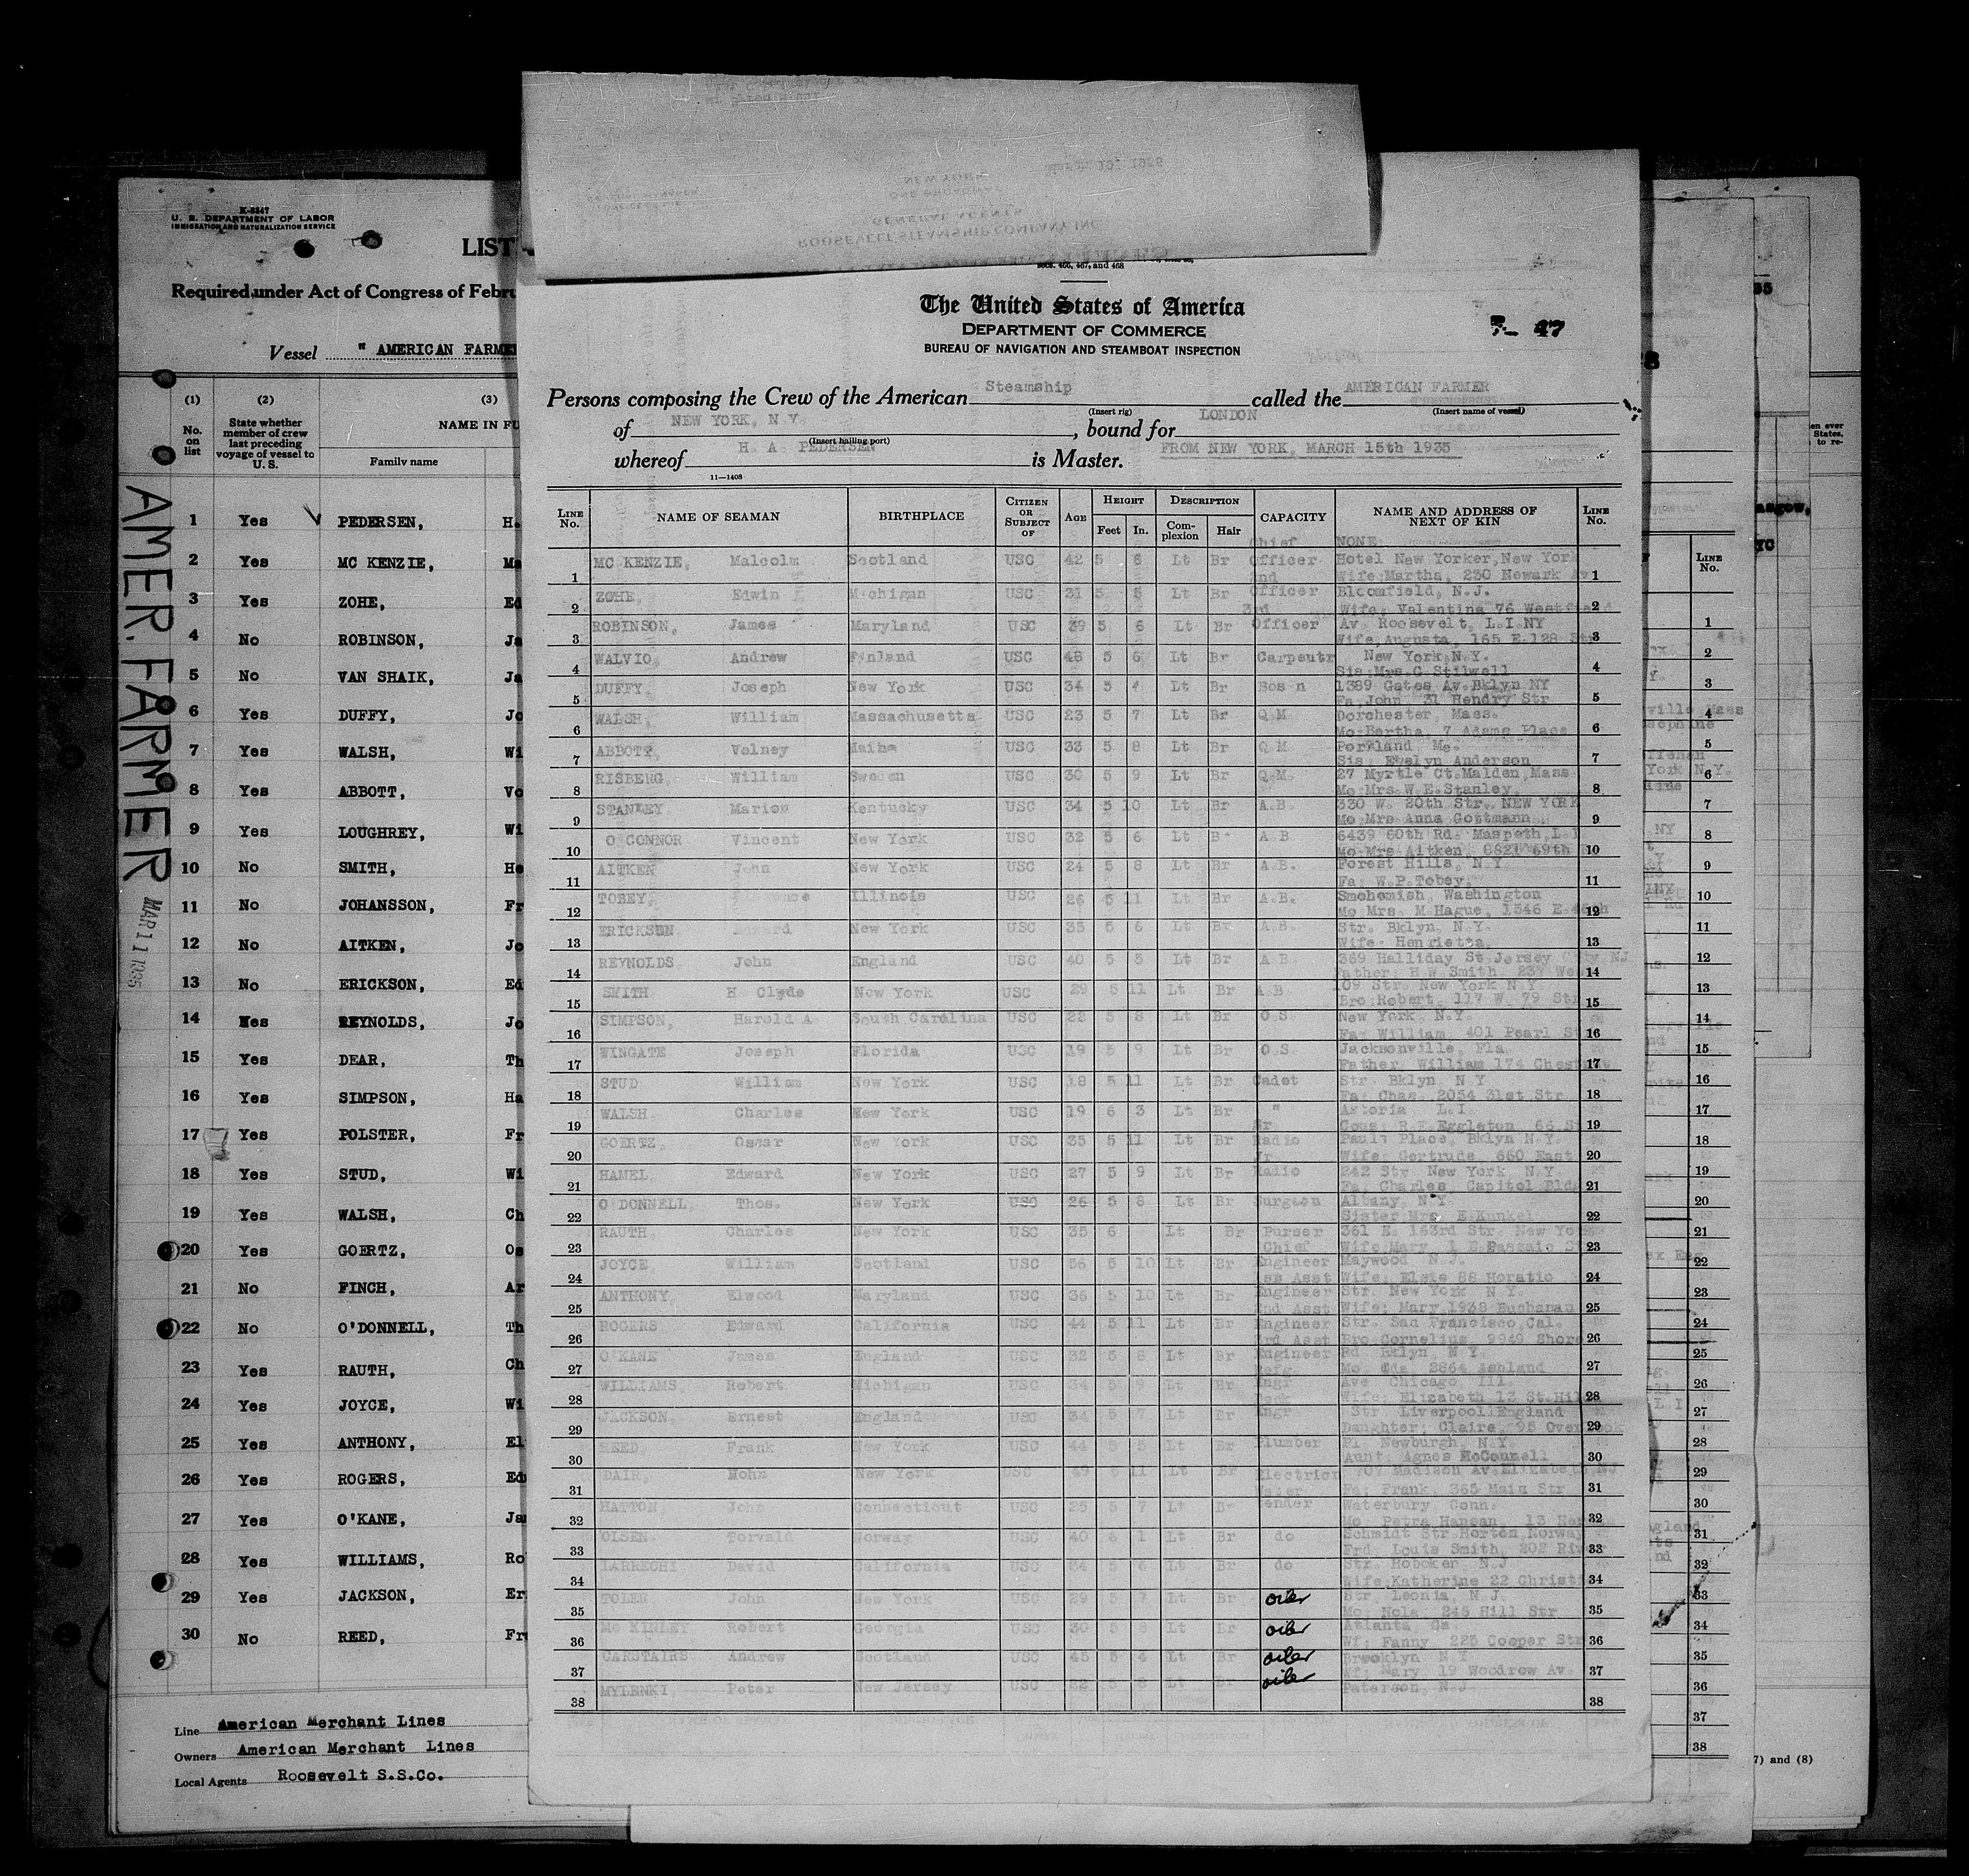 K-8847
U. S. DEPARTMENT OF LABOR
IMMIGRATION AND NATURALIZATION SERVICE
LIST
Required under Act of Congress of Febru
Vessel " AMERICAN FARMER
(1) (2) (3)
No. on list
State whether member of crew last preceding voyage of vessel to U. S.
NAME IN FU
Family name
1 Yes PEDERSEN, H.
2 Yes MC KENZIE, Ma
3 Yes ZOHE, Ed
4 No ROBINSON, Ja
5 No VAN SHAIK, Ja
6 Yes DUFFY, Jo
7 Yes WALSH, Wi
8 Yes ABBOTT, Vo
9 Yes LOUGHREY, Wi
10 No SMITH, He
11 No JOHANSSON, Fr
12 No AITKEN, Jo
13 No ERICKSON, Ed
14 Yes REYNOLDS, Jo
15 Yes DEAR, Th
16 Yes SIMPSON, Ha
17 Yes POLSTER, Fr
18 Yes STUD, Wi
19 Yes WALSH, Ch
20 Yes GOERTZ, Os
21 No FINCH, Ar
22 No O'DONNELL, Th
23 Yes RAUTH, Ch
24 Yes JOYCE, Wi
25 Yes ANTHONY, El
26 Yes ROGERS, Ed
27 Yes O'KANE, Ja
28 Yes WILLIAMS, Ro
29 Yes JACKSON, Er
30 No REED, Fr
Line American Merchant Lines
Owners American Merchant Lines
Local Agents Roosevelt S.S.Co.
AMER. FARMER
MAR 11 1935
ROOSEVELT STEAMSHIP COMPANY INC
GENERAL AGENTS
NEW YORK
secs. 466, 467, and 468
The United States of America
DEPARTMENT OF COMMERCE
BUREAU OF NAVIGATION AND STEAMBOAT INSPECTION
47
Persons composing the Crew of the American Steamship called the AMERICAN FARMER
(Insert rig) (Insert name of vessel)
of NEW YORK, N.Y. , bound for LONDON
(Insert hailing port)
whereof H. A. PEDERSEN is Master. FROM NEW YORK, MARCH 15th 1935
11—1408
LINE No. NAME OF SEAMAN BIRTHPLACE CITIZEN OR SUBJECT OF AGE HEIGHT Feet In. DESCRIPTION Complexion Hair CAPACITY NAME AND ADDRESS OF NEXT OF KIN LINE No.
Chief NONE
1 MC KENZIE, Malcolm Scotland USC 42 5 8 Lt Br Officer Hotel New Yorker, New York 1
2nd Wife: Martha, 230 Newark Av
2 ZOHE, Edwin Michigan USC 31 5 5 Lt Br Officer Bloomfield, N.J. 2
3rd Wife: Valentina 76 Westfield
3 ROBINSON, James Maryland USC 39 5 6 Lt Br Officer Av. Roosevelt, L.I NY 3
Wife, Augusta, 165 E.128 Str
4 WALVIO, Andrew Finland USC 46 5 6 Lt Br Carpentr New York N.Y. 4
Sis: Mrs. C. Stilwell
5 DUFFY, Joseph New York USC 34 5 4 Lt Br Bos n 1389 Gates Av. Bklyn NY 5
Fa. John, 31 Hendry Str
6 WALSH, William Massachusetts USC 23 5 7 Lt Br Q.M Dorchester, Mass. 6
Mo: Bertha, 7 Adams Place
7 ABBOTT, Volney Maine USC 33 5 8 Lt Br Q.M Portland Me. 7
Sis: Evelyn Anderson
8 RISBERG, William Sweden USC 30 5 9 Lt Br Q.M. 27 Myrtle Ct. Malden, Mass 8
Mo: Mrs. W.E. Stanley,
9 STANLEY Marion Kentucky USC 34 5 10 Lt Br A.B. 330 W. 20th Str. NEW YORK 9
Mo Mrs Anna Gottmann
10 O CONNOR Vincent New York USC 32 5 6 Lt Br A.B 6439 60th Rd. Maspeth, L.I 10
Mo: Mrs Aitken 69th
11 AITKEN John New York USC 24 5 8 Lt Br A.B. Forest Hills, N.Y. 11
Fa: W.P. Tobey,
12 TOBEY, Illinois USC 26 5 11 Lt Br A.B. Snohomish, Washington 12
Mo Mrs. M. Hague, 1346 E.
13 ERICKSON New York USC 35 5 6 Lt Br A.B. Str. Bklyn, N.Y. 13
Wife: Henrietta,
14 REYNOLDS John England USC 40 5 5 Lt Br A B. 369 Halliday St Jersey City NJ 14
Father, H.W. Smith, 237 We
15 SMITH H Clyde New York USC 29 5 11 Lt Br A.B. 109 Str. New York N.Y. 15
Bro: Robert, 117 W. 79 Str
16 SIMPSON, Harold A South Carolina USC 22 5 8 Lt Br O.S. New York N.Y. 16
Fa: William, 401 Pearl S
17 WINGATE Joseph Florida USC 19 5 9 Lt Br O.S. Jacksonville, Fla. 17
Father, William 174 Chest
18 STUD William New York USC 18 5 11 Lt Br Cadet Str. Bklyn N.Y 18
Fa: Chas. 2054 31st Str
19 WALSH Charles New York USC 19 6 3 Lt Br " Astoria L.I. 19
Sr. Cous: R.F. Eggleton 66 St
20 GOERTZ, Oscar New York USC 35 5 11 Lt Br Radio Pauls Place, Bklyn N.Y. 20
Jr. Wife: Gertrude, 660 East
21 HAMEL Edward New York USC 27 5 9 Lt Br Radio 242 Str. New York N.Y. 21
Fa: Charles, Capitol Bldg
22 O DONNELL Thos. New York USC 26 5 8 Lt Br Surgeon Albany N.Y. 22
Sister Mrs. E. Kunkel
23 RAUTH, Charles New York USC 35 6 Lt Br Purser 361 E. 163rd Str. New York 23
Chief Wife Mary, 1 E Passaic S
24 JOYCE William Scotland USC 56 5 10 Lt Br Engineer Maywood N.J. 24
1st Asst Wife: Elsie 88 Horatio
25 ANTHONY Elwood Maryland USC 36 5 10 Lt Br Engineer Str. New York N.Y. 25
2nd Asst Wife: Mary 1938 Buchanan
26 ROGERS Edward California USC 44 5 11 Lt Br Engineer Str. San Francisco, Cal. 26
3rd Asst Bro Cornelius, 9949 Shore
27 O'KANE James England USC 32 5 8 Lt Br Engineer Rd Bklyn, N.Y. 27
Refg. Mo. 2864 Ashland
28 WILLIAMS, Robert Michigan USC 34 5 9 Lt Br Engr Ave Chicago, Ill. 28
Deck Wife: Elizabeth 12 St. Hil
29 JACKSON, Ernest England USC 34 5 7 Lt Br Engr Str. Liverpool England 29
Daughter, Claire, 95 Overlook
30 REED, Frank New York USC 44 5 5 Lt Br Plumber Pl. Newburgh, N.Y. 30
Aunt. Agnes McConnell
31 DAIR, Mohn New York USC 49 5 11 Lt Br Electrician 707 Madison Av. Elizabeth NJ 31
Water Fa: Frank, 365 Main Str
32 HATTON, John Connecticut USC 25 5 7 Lt Br tender Waterbury Conn. 32
Mo Petra Hansan, 13
33 OLSEN Torvald Norway USC 40 6 1 Lt Br do Schmidt Str Horten, Norwa, 33
Frd. Louis Smith, 202 River
34 David California USC 34 5 6 Lt Br do Str. Hoboken N.J 34
Wife: Katherine 22 Christi
35 TOLER John New York USC 29 5 7 Lt Br oiler Str Leonia, N.J. 35
Mo: Nola 245 Hill Str
36 Mc KINLEY Robert Georgia USC 30 5 8 Lt Br oiler Atlanta, Ga. 36
Wf: Fanny 225 Cooper Str
37 CARSTAIRS Andrew Scotland USC 45 5 4 Lt Br oiler Brooklyn N Y 37
Wf: Mary 19 Woodrow Av.
38 MYLENKI Peter New Jersey USC 22 5 8 Lt Br oiler Paterson, N.J. 38
LINE No.
1
2
3
4
5
6
7
8
9
10
11
12
13
14
15
16
17
18
19
20
21
22
23
24
25
26
27
28
29
30
31
32
33
34
35
36
37
38
7) and (8)